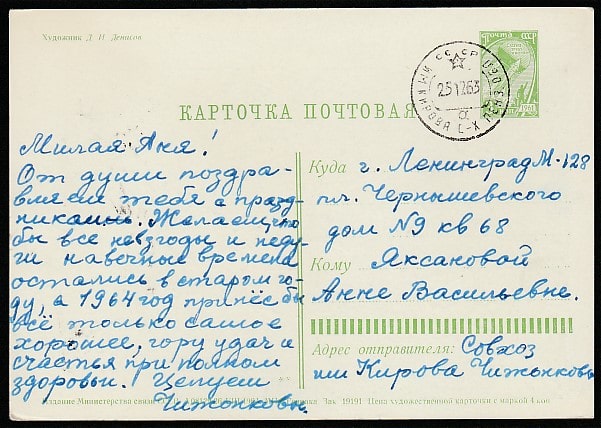 Художник Д. И. Денисов
ПОЧТА СССР
СССР
25 12 63
КАРТОЧКА ПОЧТОВАЯ
Милая Аня!
От души поздра-
вляем тебя с празд-
никами. Желаем, что
бы все невзгоды и неду-
ги на вечные времена
остались в старом го-
ду, а 1964 год принёс бы
всё только самое
хорошее, гору удач и
счастья при полном
здоровьи. Целуем
Чижонковы.
Куда г. Ленинград М-128
пл. Чернышевского
дом N9 кв 68
Кому Яксановой
Анне Васильевне.
Адрес отправителя: Совхоз
им Кирова Чижонковы
Издание Министерства связи
Зак. 19191 Цена художественной карточки с маркой 4 коп